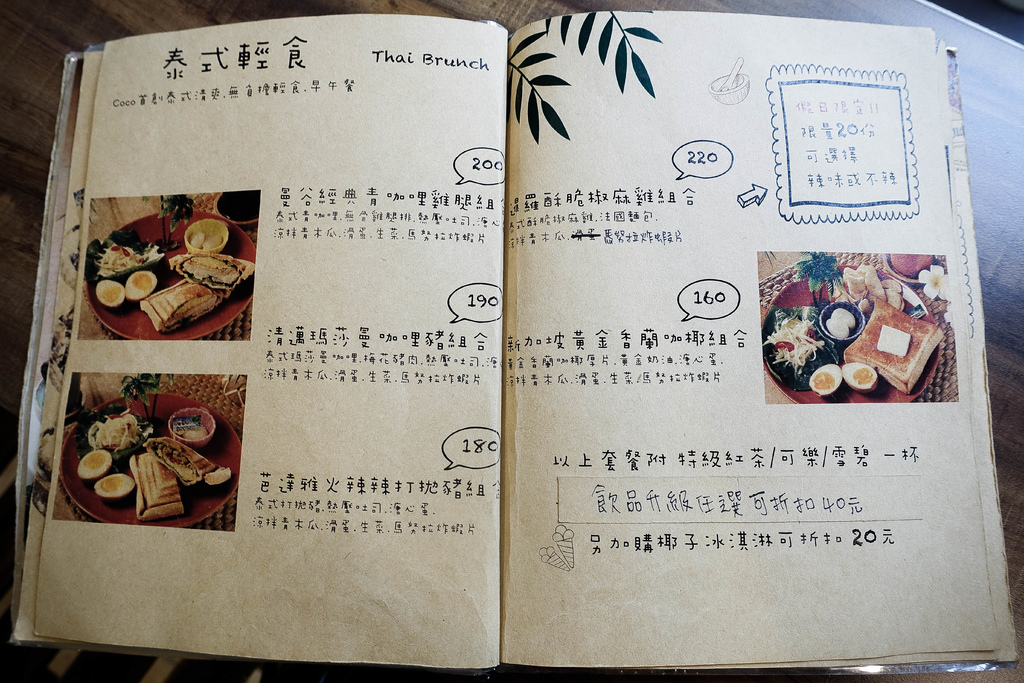 泰式輕食 Thai Brunch
Coco首創泰式清爽.無負擔輕食.早午餐
200
曼谷經典青咖哩雞腿組合
泰式青咖哩.無骨雞腿排.熱壓吐司.溏心
涼拌青木瓜.滑蛋.生菜.馬努拉炸蝦片
190
清邁瑪莎曼咖哩豬組合
泰式瑪莎曼咖哩.梅花豬肉.熱壓吐司.溏
涼拌青木瓜.滑蛋.生菜.馬努拉炸蝦片
180
芭達雅火辣辣打拋豬組合
泰式打拋豬.熱壓吐司.溏心蛋.
涼拌青木瓜.滑蛋.生菜.馬努拉炸蝦片
假日限定!!
限量20份
可選擇
辣味或不辣
220
暹羅酥脆椒麻雞組合
泰式酥脆椒麻雞.法國麵包.
涼拌青木瓜.滑蛋.馬努拉炸蝦片
160
新加坡黃金香蘭咖椰組合
黃金香蘭咖椰厚片.黃金奶油.溏心蛋.
涼拌青木瓜.滑蛋.生菜.馬努拉炸蝦片
以上套餐附 特級紅茶/可樂/雪碧 一杯
飲品升級任選可折扣40元
另加購椰子冰淇淋可折扣20元